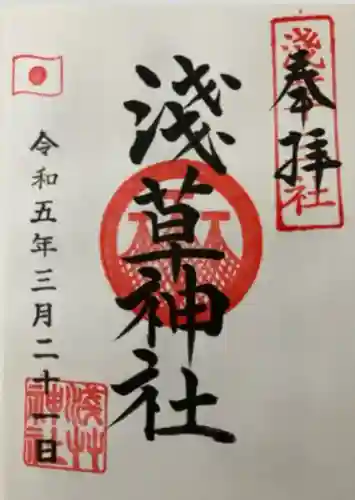 奉拝
浅社
淺草神社
令和五年三月二十一日
淺草神社